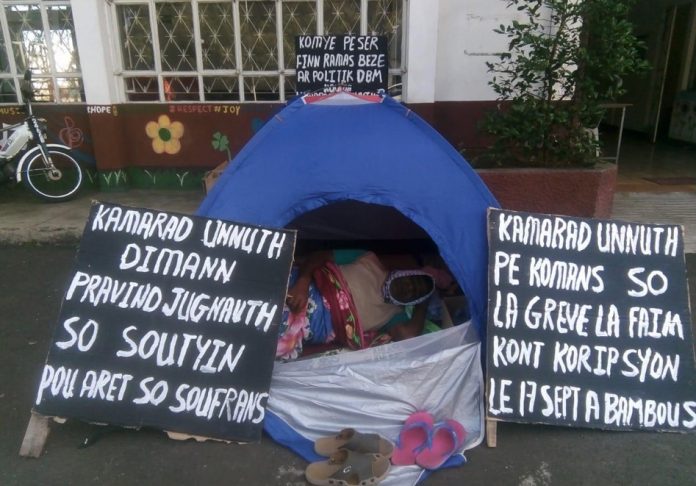 KOMYE PESER
FINN RAMAS BEZE
AR POLITIK DBM
#HOPE
#RESPECT #JOY
KAMARAD UNNUTH
DIMANN
PRAVIND JUGNAUTH
SO SOUTYIN
POU ARET SO SOUFRANS
KAMARAD UNNUTH
PE KOMANS SO
LA GREVE LA FAIM
KONT KORIPSYON
LE 17 SEPT A BAMBOUS